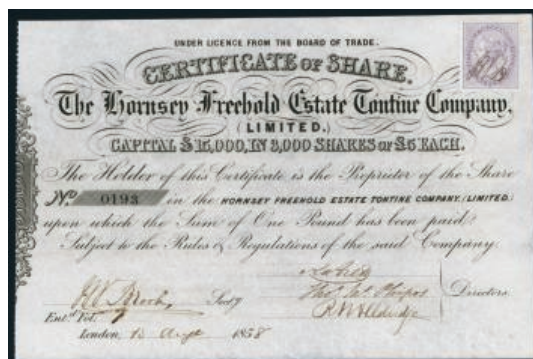 UNDER LICENCE FROM THE BOARD OF TRADE.
CERTIFICATE OF SHARE.
The Hornsey Freehold Estate Tontine Company,
(LIMITED.)
CAPITAL £15,000, IN 3,000 SHARES OF £5 EACH.
The Holder of this Certificate is the Proprietor of the Share
No. 0193 in the HORNSEY FREEHOLD ESTATE TONTINE COMPANY, (LIMITED)
upon which the Sum of One Pound has been paid.
Subject to the Rules & Regulations of the said Company.
Secy
Directors
Entd. Fol.
London, 13 Augt 1858